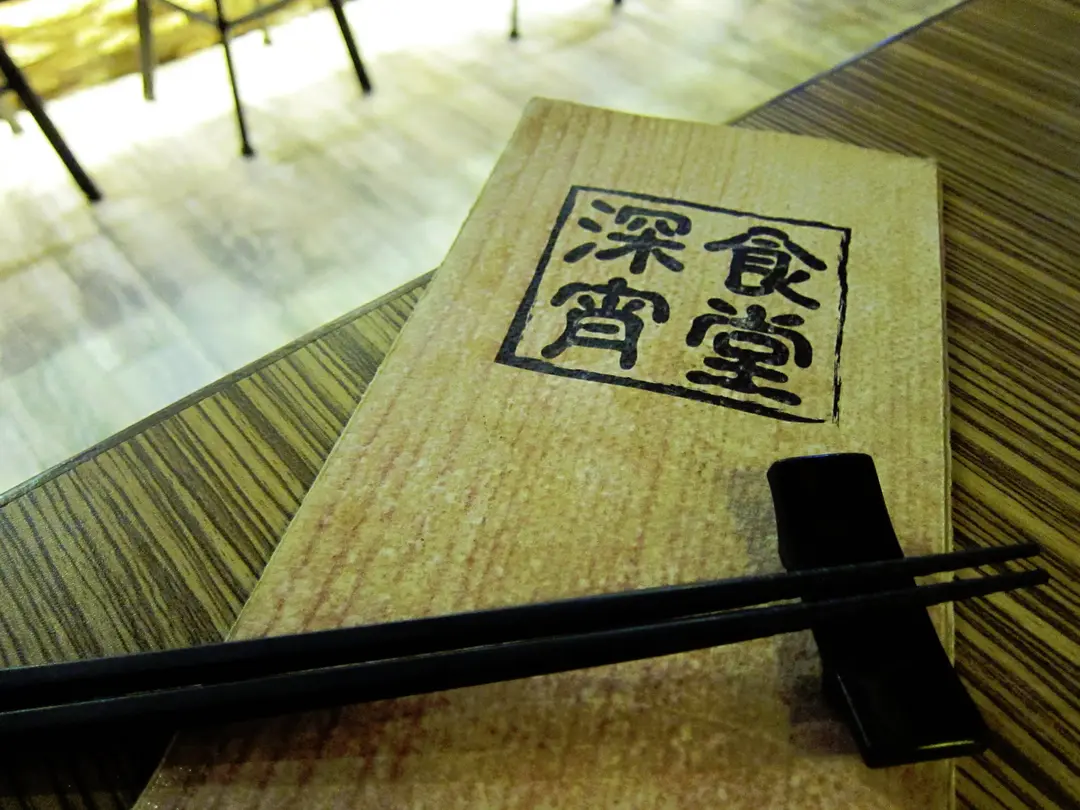 深食
宵堂